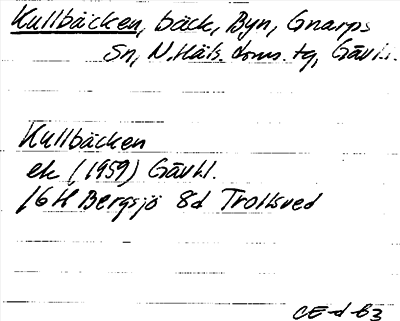 Kullbäcken, bäck, Byn, Gnarps
Sn, N. Häls. doms. tg, Gävl.
Kullbäcken
ek (1959) Gävl.
16H Bergsjö 8d Trollsved
CE-d-63